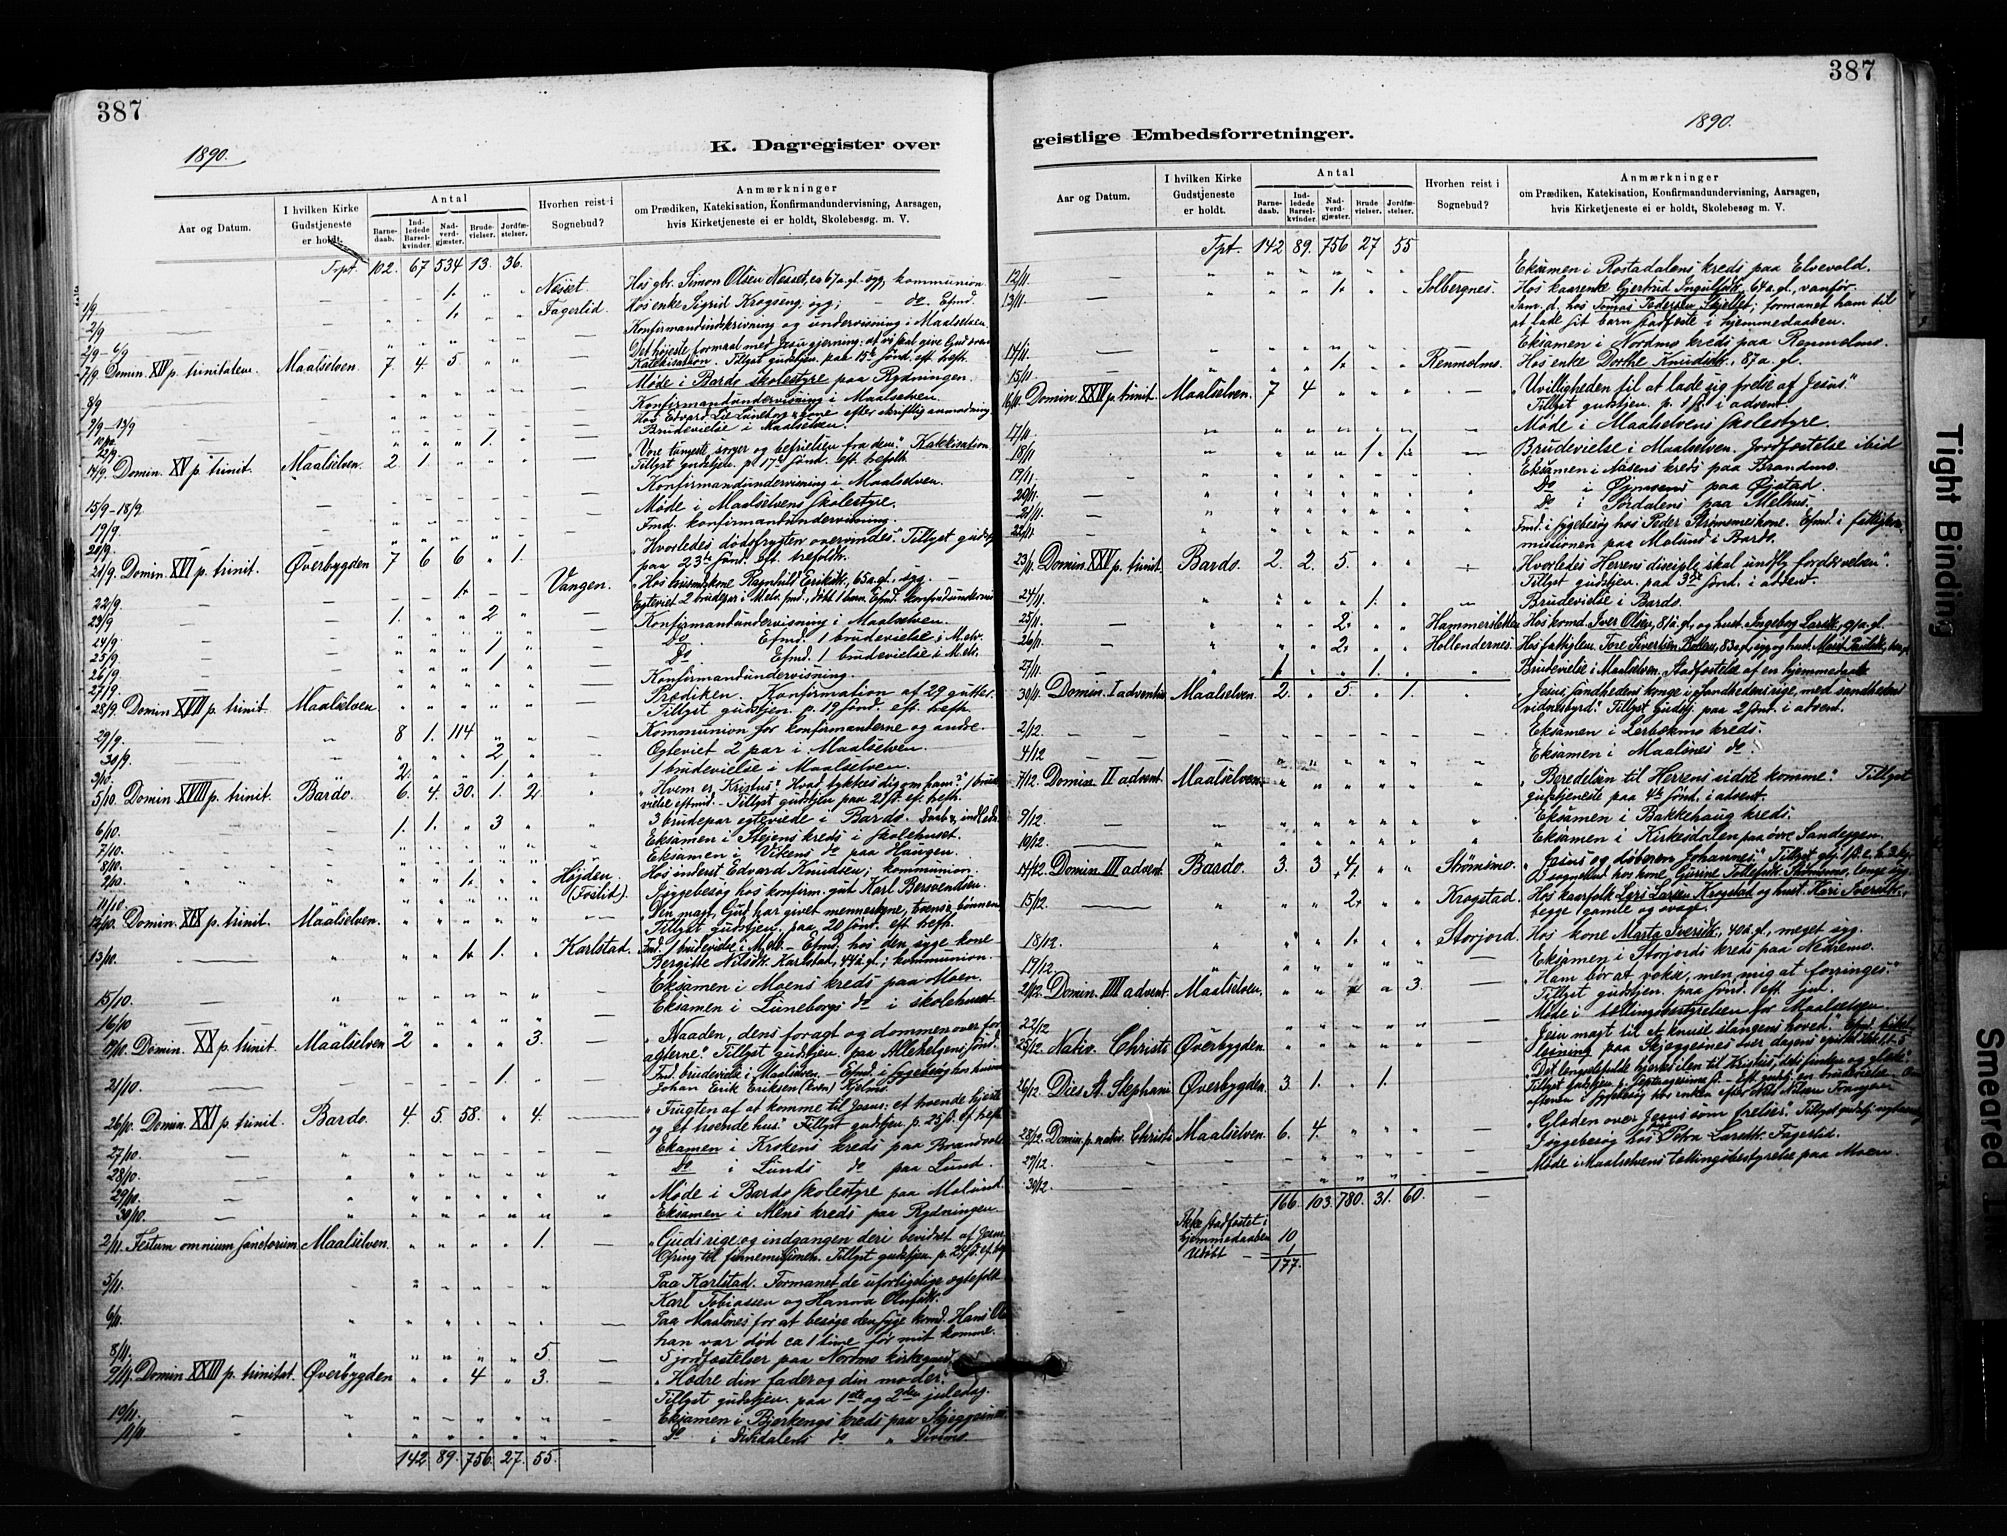 387
1890.
K. Dagregister over
Aar og Datum.
I hvilken Kirke Gudstjeneste er holdt.
Antal
Barne-daab.
Ind-ledede Barsel-kvinder.
Nad-verd-gjæster.
Brude-vielser.
Jordfæ-stelser.
Hvorhen reist i Sognebud?
Anmærkninger
om Prædiken, Katekisation, Konfirmandundervisning, Aarsagen,
hvis Kirketjeneste ei er holdt, Skolebesøg m. V.
Trpt. 102. 67 534 13. 36.
1/9 1. Neset. Hos gbr. Simon Olsen Neset, ca 67 a. gl. syg, kommunion
2/9 1. Fagerlid. Hos enke Sigrid Krogseng, syg; do. Efmd.
2/9 - 6/9 Konfirmandindskrivning og undervisning i Maalselven.
7/9 Domin. XIV p. trinitatem. Maalselven 7. 4. 5 Det højeste formaal med Jesu gjerning: at vi skal give Gud æren
Katekisation. Tillyst gudstjen. paa 15de sønd. eft. trefh.
8/9 Møde i Bardo skolestyre paa Rydningen.
9/9 - 13/9 Konfirmandundervisning i Maalselven.
Brudevielse i Maalselven.
14/9 Domin. XV p. trinit. Maalselven 2. 1. "Vore tungeste sorger og befrielsen fra dem." Katekisation
Tillyst gudstjen. p. 17de sønd. eft. trefoldh.
15/9 - 18/9 Konfirmandundervisning i Maalselven.
19/9 Møde i Maalselvens skolestyre.
20/9 Fmd. konfirmandundervisning.
21/9 Domin. XVI p. trinit. Øverbygden 7 6 6 1. "Hvorledes dødsfrygten overvindes." Tillyst gudstj.
paa 23de sønd. eft. trefoldh.
22/9 1. Vangen. Hos husmdskone Ragnhild Eriksdt., 65 a. gl., syg.
23/9 1. 2 Egteviet 2 brudepar i Melv. fmd., døbt 1 barn. Efmd. konfmdunderv.
24/9 Konfirmandundervisning i Maalselven.
25/9 1 Do Efmd. 1 brudevielse i M.elv.
26/9 1 Do Efmd. 1 brudevielse i M.elv.
27/9 Konfirmandundervisning.
28/9 Domin XVII p. trinit Maalselven Prædiken. Konfirmation af 29 gutter.
Tillyst gudstjen. p. 19 sønd. eft. trefh
29/9 8 1. 114 Kommunion for konfirmanderne og andre.
30/9 2 Egteviet 2 par i Maalselven.
3/10 2. 1. 1 brudevielse i Maalselven.
5/10. Domin XVIII p. trinit. Bardo. 6. 4. 30. 1. 2 "Hvem er Kristus? Hvad tykkes dig om ham?" 1 brude
vielse eftmd. - Tillyst gudstjen paa 21 st. ef. trefh.
6/10. 1. 1. 3 3 brudepar egteviede i Bardo.
7/10. Eksamen i Stejens kreds i skolehuset.
8/10. Eksamen i Vikens do paa Haugen.
9/10. 1. Højden (Foslid). Hos inderst Edvard Knudsen; kommunion.
11/10. Sygebesøg hos konfirm. gut Karl Berventsen.
12/10. Domin. XIX p. trinit. Maalselven. "Den magt, Gud har givet menneskene, troens bønnen
Tillyst gudstjen. paa 20 sønd. eft. trefh.
13/10. 1. 1. Karlstad. Fmd. 1 brudevielse i Melv. - Efmd. hos den syge kone
Bergitte Nilsdt. Karlstad, 44 a. gl.; kommunion.
15/10. Eksamen i Moens kreds paa Moen.
16/10 Eksamen i Luneborgs do i skolehuset.
19/10. Domin. XX p. trinit. Maalselven 2 3. "Naaden, dens foragt og dommen over for
agterne." Tillyst gudstjen. paa Allehelgens sønd.
21/10. 1. Fmd. brudevielse i Maalselven. - Efmd. i sygebesøg hos
Johan Erik Eriksen
26/10. Domin. XXI p. trinit. Bardo. 4. 5. 58. 4. "Frugten af at komme til Jesus: et troende hjerte
og et troende hus." Tillyst gudstjen. p. 25 st. ef. trefh
27/10. Eksamen i Krokens kreds paa Brandvold
28/10. Do i Lunds do paa Lund.
29/10. Møde i Bardo skolestyre paa Molund.
30/10. Eksamen i Mens kreds paa Rydningen.
2/11. Festum omnium sanctorum Maalselven. 1. "Guds rige og indgangen deri bevidnet af Jesus."
Ofring til finnemissionen. Tillyst gudstjen. p. 24 s. ef. tref
5/11. Paa Karlstad. Formanet de uforligelige egtefolk
Karl Tobiassen og Hanna Olufsdt.
6/11. Paa Maalsnes for at besøge den syge kmd. Hans
han var død ca 1 time før mit komme.
8/11. 5. 5 jordfæstelser paa Nordmo kirkegaard.
9/11. Domin. XXIII p. trinitat. Øverbygden 4 3. "Hædre din fader og din moder."
Tillyst gudstjen. paa 1ste og 2den juledag.
10/11. Eksamen i Bjerkengs kreds paa Skjeggesnes
11/11 Do i Dividalens do " Divimo.
142 89. 756. 27. 55.
387
1890.
geistlige Embedsforretninger.
Aar og Datum.
I hvilken Kirke Gudstjeneste er holdt.
Antal
Barne-daab.
Ind-ledede Barsel-kvinder.
Nad-verd-gjæster.
Brude vielser.
Jordfæ-stelser.
Hvorhen reist i Sognebud?
Anmærkninger
om Prædiken, Katekisation, Konfirmandundervisning, Aarsagen,
hvis Kirketjeneste ei er holdt, Skolebesøg m. V.
Tpt. 142 89. 756 27 55
12/11. Eksamen i Rostadalens kreds paa Elvevold.
13/11. 1. Solbergnes. Hos kaarenke Gjertrud Ingulfsdt., 64 a. gl., vanfør.
Sam. d. hos Tomas Pedersen Skjellet; formanet ham til
at lade sit barn stadfæste i hjemmedaaben.
14/11. Eksamen i Nordmo kreds paa Renmolmo.
15/11. 1. Renmolmo. Hos enke Dorthe Knudsdt., 87 a. gl.
16/11. Domin. XXIV p. trinit. Maalselven. 7 4 "Uvilligheden til at lade sig frelse af Jesus."
Tillyst gudstjen. p. 1 s. i advent.
17/11. Møde i Maalselvens skolestyre.
18/11 1. 1. Brudevielse i Maalselven. Jordfæstelse ibid
19/11. Eksamen i Nasens kreds paa Brandmo.
20/11. Do i Øjensens paa Øjstad.
21/11. Do i Sørdalens paa Melhus.
22/11. Fmd. i sygebesøg hos Peder Strømsmo's kone. Efmd. i fattigkom-
missionen paa Molund i Bardo.
23/11. Domin. XXV p. trinit. Bardo. 2. 2. 5. "Hvorledes Herrens disciple skal undfly fordærvelsen".
Tillyst gudstjen. paa 3de sønd. i advent.
24/11. 1. Brudevielse i Bardo.
25/11. 2. Hammersletten Hos kmd. Iver Olsen, 81 a. gl., og hust. Ingeborg Larsdt.
26/11. 2. Hollendernes. Hos fattiglem. Tore Sivertsen
27/11. 1 1. Brudevielse i Maalselven. Stadfæstelse af en hjemmedøbt
30/11. Domin. I adventus Maalselven 2. 5. 1. "Jesus, sandhedens konge i sandhedens rige, med sandhedens
vidnesbyrd." Tillyst gudstj. paa 2 sønd. i advent.
2/12. Eksamen i Lerbekmo kreds.
4/12 Eksamen i Maalsnes do.
7/12. Domin II advent. Maalselven "Beredelsen til Herrens sidste komme." Tillyst
gudstjeneste paa 4de sønd. i advent.
9/12. Eksamen i Bakkehaug kreds.
10/12. Eksamen i Kirkesdalen paa øvre Sandeggen.
14/12. Domin. III advent. Bardo. 3 3 4. Strømsmo. "Jesus og døberen Johannes."
15/12. 2. Krogstad. Hos kaarfolk Lars Larsen Krogstad og hust. Kari Iversdt.,
begge gamle og svage.
18/12. 1. Storjord. Hos kone Marta Iversdt., 40 a. gl., meget syg.
19/12. Eksamen i Storjords kreds paa Nedremo.
21/12. Domin. IIII advent. Maalselven. 3. "Ham bør at vokse, men mig at forringes."
Tillyst gudstjen. paa sønd. eft. jul.
22/12. Møde i tællingsbestyrelsen for Maalselven.
25/12. Nativ. Christi Øverbygden. "Jesu magt til at knuse slangens hoved."
26/12. Dies St. Stephani Øverbygden. 3. 1. 1.
28/12. Domin. p. nativ. Christi Maalselven. 6. 4. "Glæden over Jesus som frelser."
29/12. Sygebesøg hos Petra Larsdt. Fagerlid.
30/12. Møde i Maalselvens tællingsbestyrelse paa Moen.
166. 103. 780. 31. 60.
Ikke stadfæstet i
hjemmedaaben 10
Udøbt - 1
177.
Tight Binding
Smeared